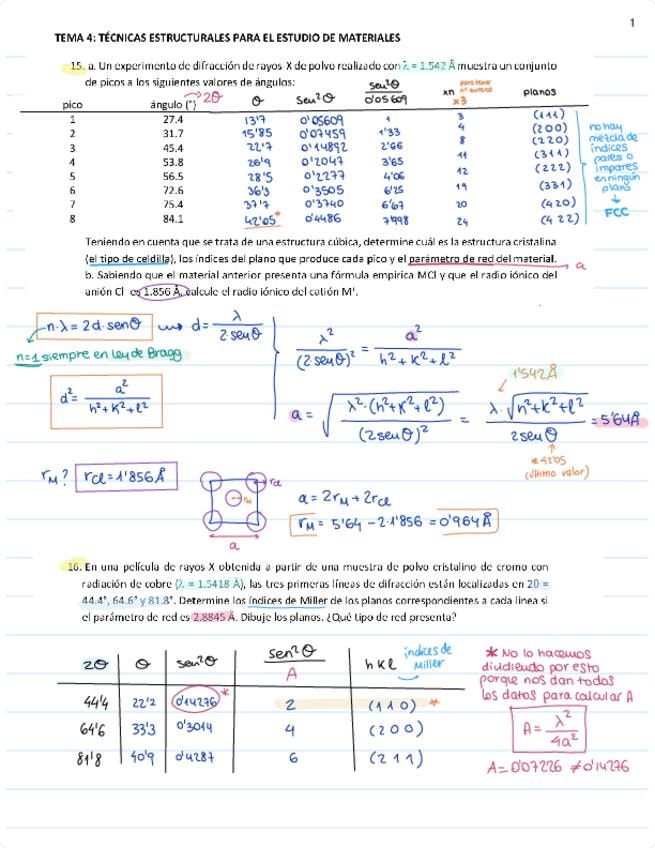 1
TEMA 4: TÉCNICAS ESTRUCTURALES PARA EL ESTUDIO DE MATERIALES
15. a. Un experimento de difracción de rayos-X de polvo realizado con λ = 1.542 Å muestra un conjunto
de picos a los siguientes valores de ángulos:
pico ángulo (°) → 2θ θ sen²θ sen²θ/0'05609 xn para tener nº enteros x3 planos
1 27.4 13'7 0'05609 1 3 (111)
2 31.7 15'85 0'07459 1'33 4 (200)
3 45.4 22'7 0'14892 2'66 8 (220)
4 53.8 26'9 0'2047 3'65 11 (311)
5 56.5 28'5 0'2277 4'06 12 (222)
6 72.6 36'3 0'3505 6'25 19 (331)
7 75.4 37'7 0'3740 6'67 20 (420)
8 84.1 42'05* 0'4486 7'998 24 (422)
no hay
mezcla de
índices
pares o
impares
en ningún
plano
↓
FCC
Teniendo en cuenta que se trata de una estructura cúbica, determine cuál es la estructura cristalina
(el tipo de celdilla), los índices del plano que produce cada pico y el parámetro de red del material.
→ a
b. Sabiendo que el material anterior presenta una fórmula empírica MCl y que el radio iónico del
anión Cl⁻ es 1.856 Å, calcule el radio iónico del catión M⁺.
n·λ = 2d·senθ → d = λ/2senθ
n=1 siempre en ley de Bragg
d² = a²/h²+k²+l²
λ²/(2senθ)² = a²/h²+k²+l²
1'542Å
a = √(λ²·(h²+k²+l²)/(2senθ)²) = λ·√h²+k²+l²/2senθ = 5'64Å
* 42'05
(último valor)
rM? rCl = 1'856Å
rCl
rM
a
a = 2rM + 2rCl
rM = 5'64 - 2·1'856 = 0'964Å
16. En una película de rayos X obtenida a partir de una muestra de polvo cristalino de cromo con
radiación de cobre (λ = 1.5418 Å), las tres primeras líneas de difracción están localizadas en 2θ =
44.4°, 64.6° y 81.8°. Determine los índices de Miller de los planos correspondientes a cada línea si
el parámetro de red es 2.8845 Å. Dibuje los planos. ¿Qué tipo de red presenta?
2θ θ sen²θ sen²θ/A hkl índices de Miller
44'4 22'2 0'14276* 2 (110) *
64'6 33'3 0'3014 4 (200)
81'8 40'9 0'4287 6 (211)
* No lo hacemos
dividiendo por esto
porque nos dan todos
los datos para calcular A
A = λ²/4a²
A = 0'07226 ≠ 0'14276